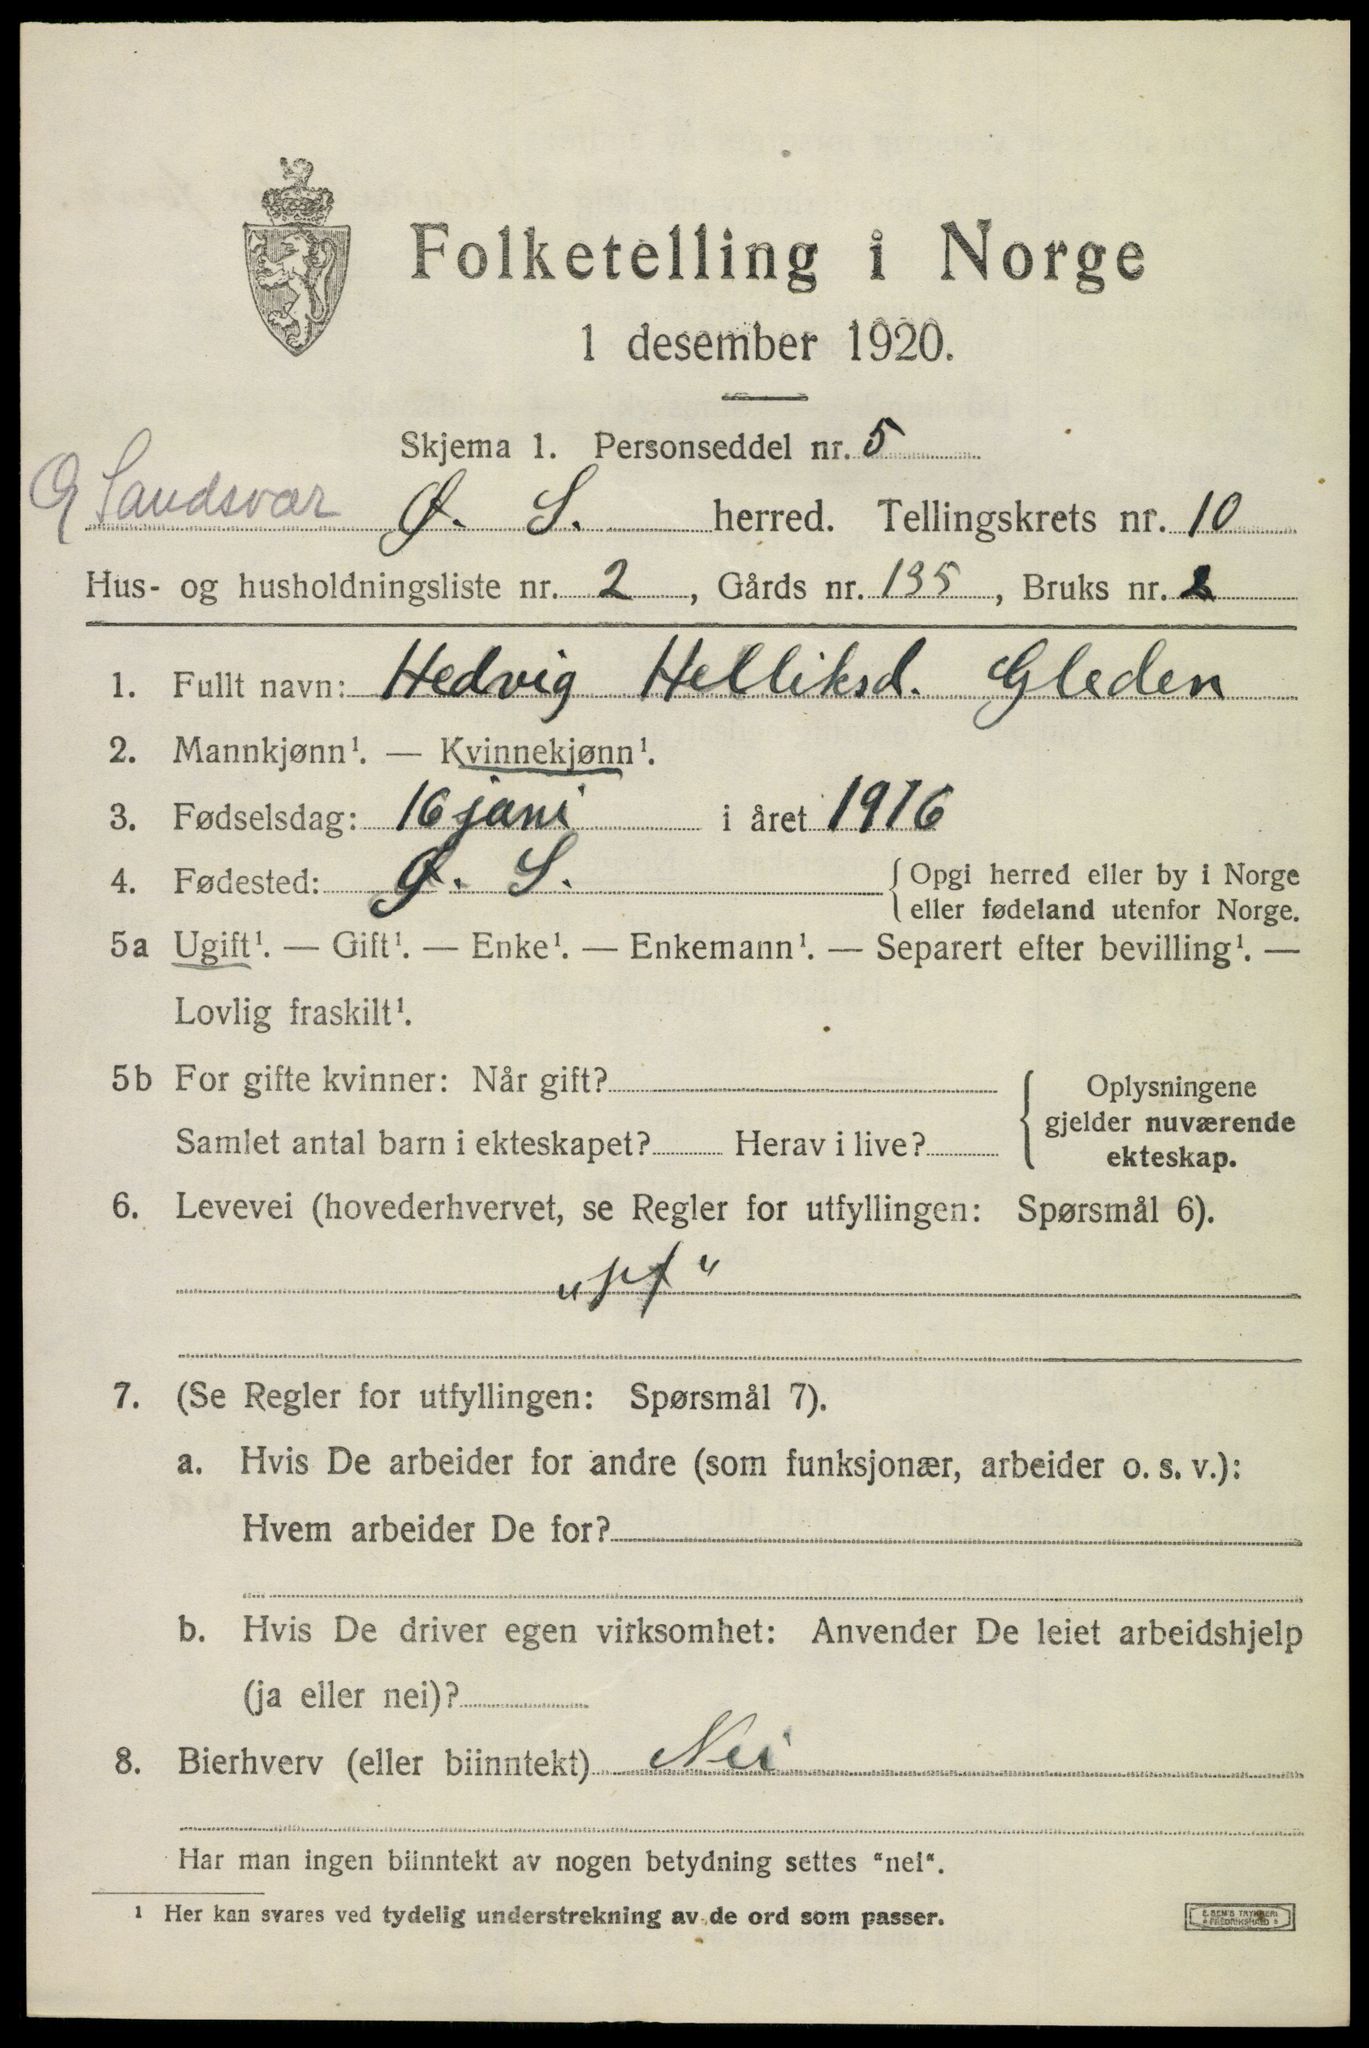 Folketelling i Norge
1 desember 1920.
Skjema 1. Personseddel nr. 5
Ø Sandsvær Ø. S. herred. Tellingskrets nr. 10
Hus- og husholdningsliste nr. 2, Gårds nr. 135, Bruks nr. 2
1. Fullt navn: Hedvig Helliksd. Gleden
2. Mannkjønn¹. — Kvinnekjønn¹.
3. Fødselsdag: 16 juni i året 1916
4. Fødested: Ø. S. { Opgi herred eller by i Norge
eller fødeland utenfor Norge.
5a Ugift¹. — Gift¹. — Enke¹. — Enkemann¹. — Separert efter bevilling¹. —
Lovlig fraskilt¹.
5b For gifte kvinner: Når gift?
Samlet antal barn i ekteskapet? Herav i live?
{ Oplysningene
gjelder nuværende
ekteskap.
6. Levevei (hovederhvervet, se Regler for utfyllingen: Spørsmål 6).
7. (Se Regler for utfyllingen: Spørsmål 7).
a. Hvis De arbeider for andre (som funksjonær, arbeider o. s. v.):
Hvem arbeider De for?
b. Hvis De driver egen virksomhet: Anvender De leiet arbeidshjelp
(ja eller nei)?
8. Bierhverv (eller biinntekt) Nei
Har man ingen biinntekt av nogen betydning settes "nei".
¹ Her kan svares ved tydelig understrekning av de ord som passer.